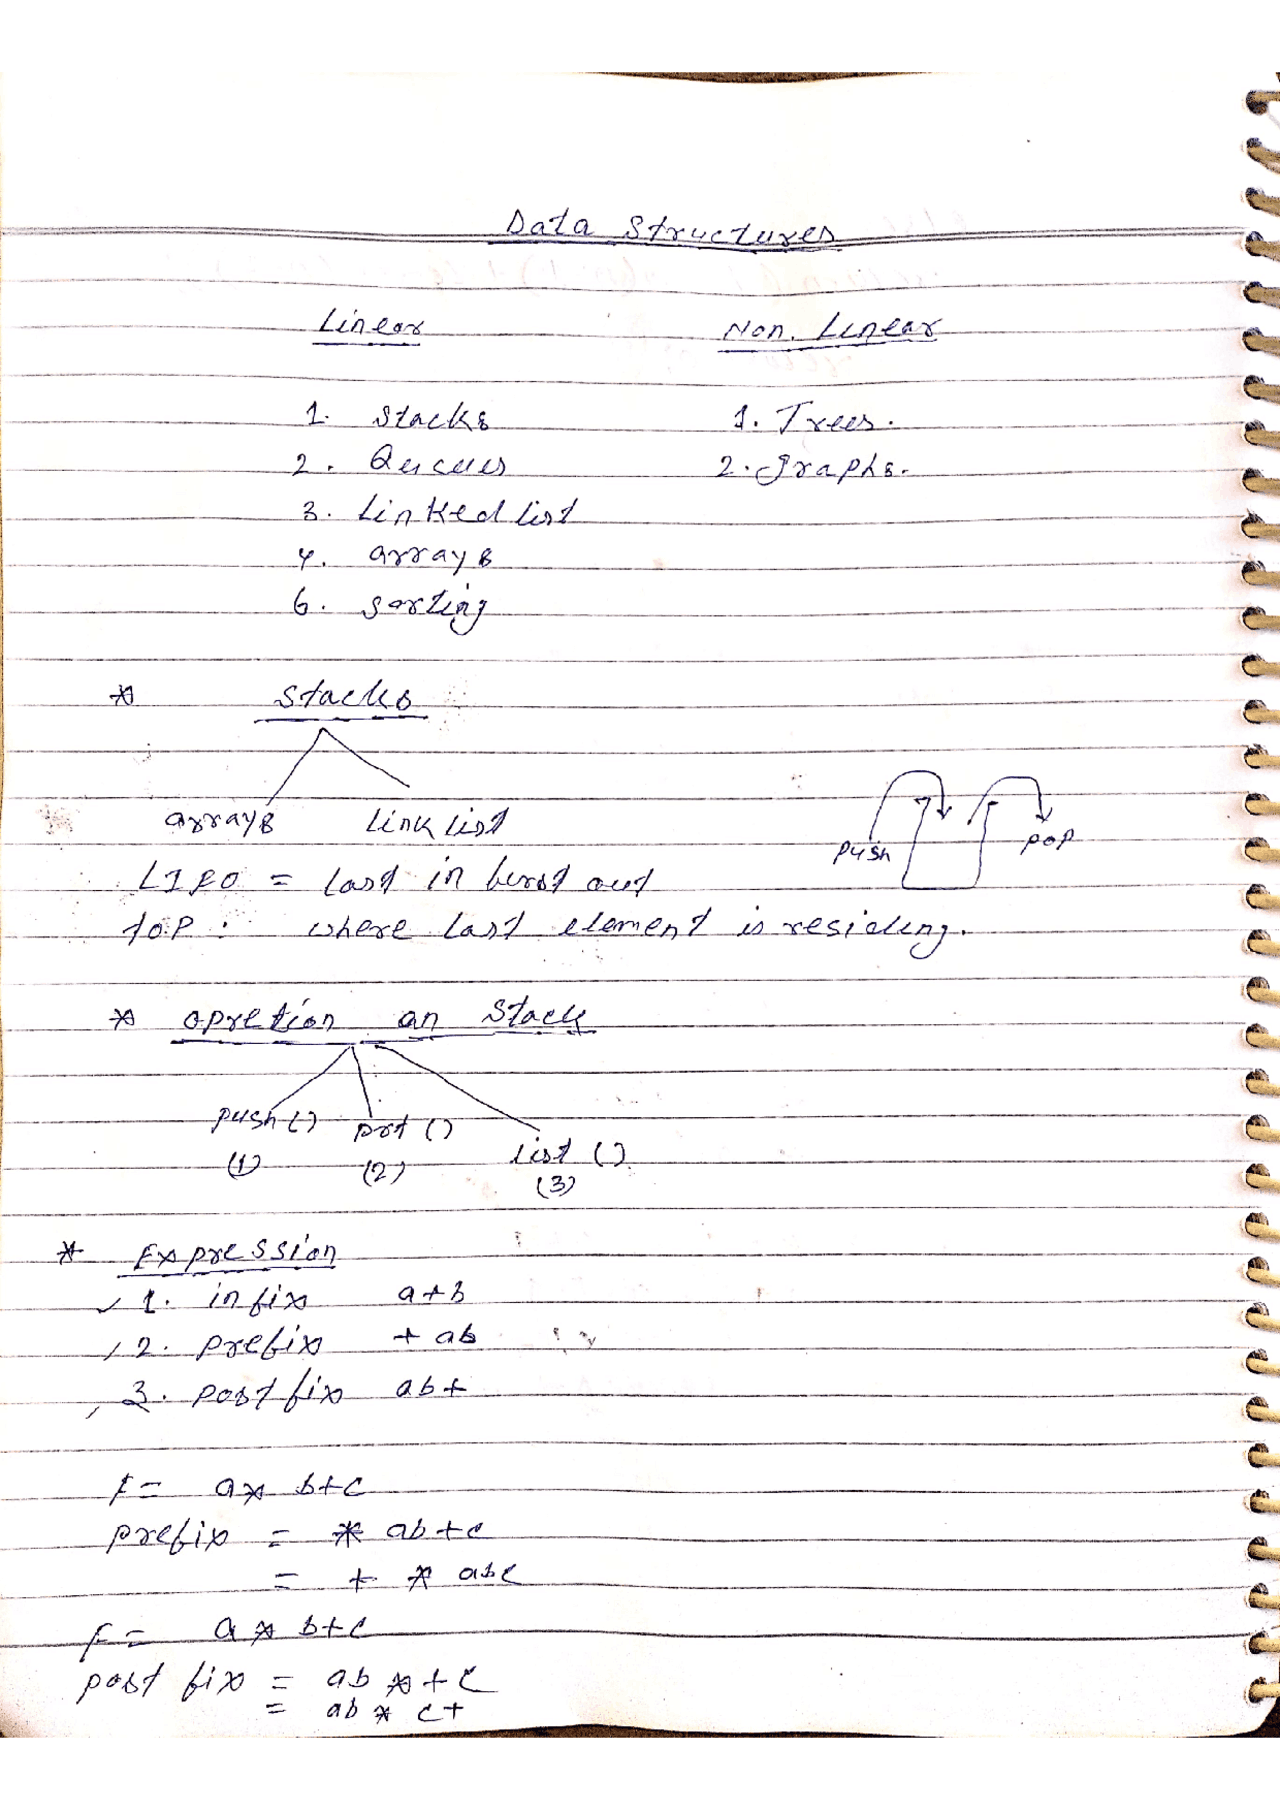 Data Structures
Linear Non. Linear
1. Stacks 1. Trees.
2. Queues 2. graphs.
3. Linked list
4. arrays
6. sorting
* Stacks
arrays link list
push pop
LIFO = last in first out
top : where last element is residing.
* opretion on Stack
push () pot ()
list ()
(1) (2)
(3)
* Expression
1. infix a+b
2. prefix + ab
3. postfix ab+
E = a* b+c
prefix = * ab+c
= + * abc
E = a * b+c
post fix = ab * + c
= ab * c+